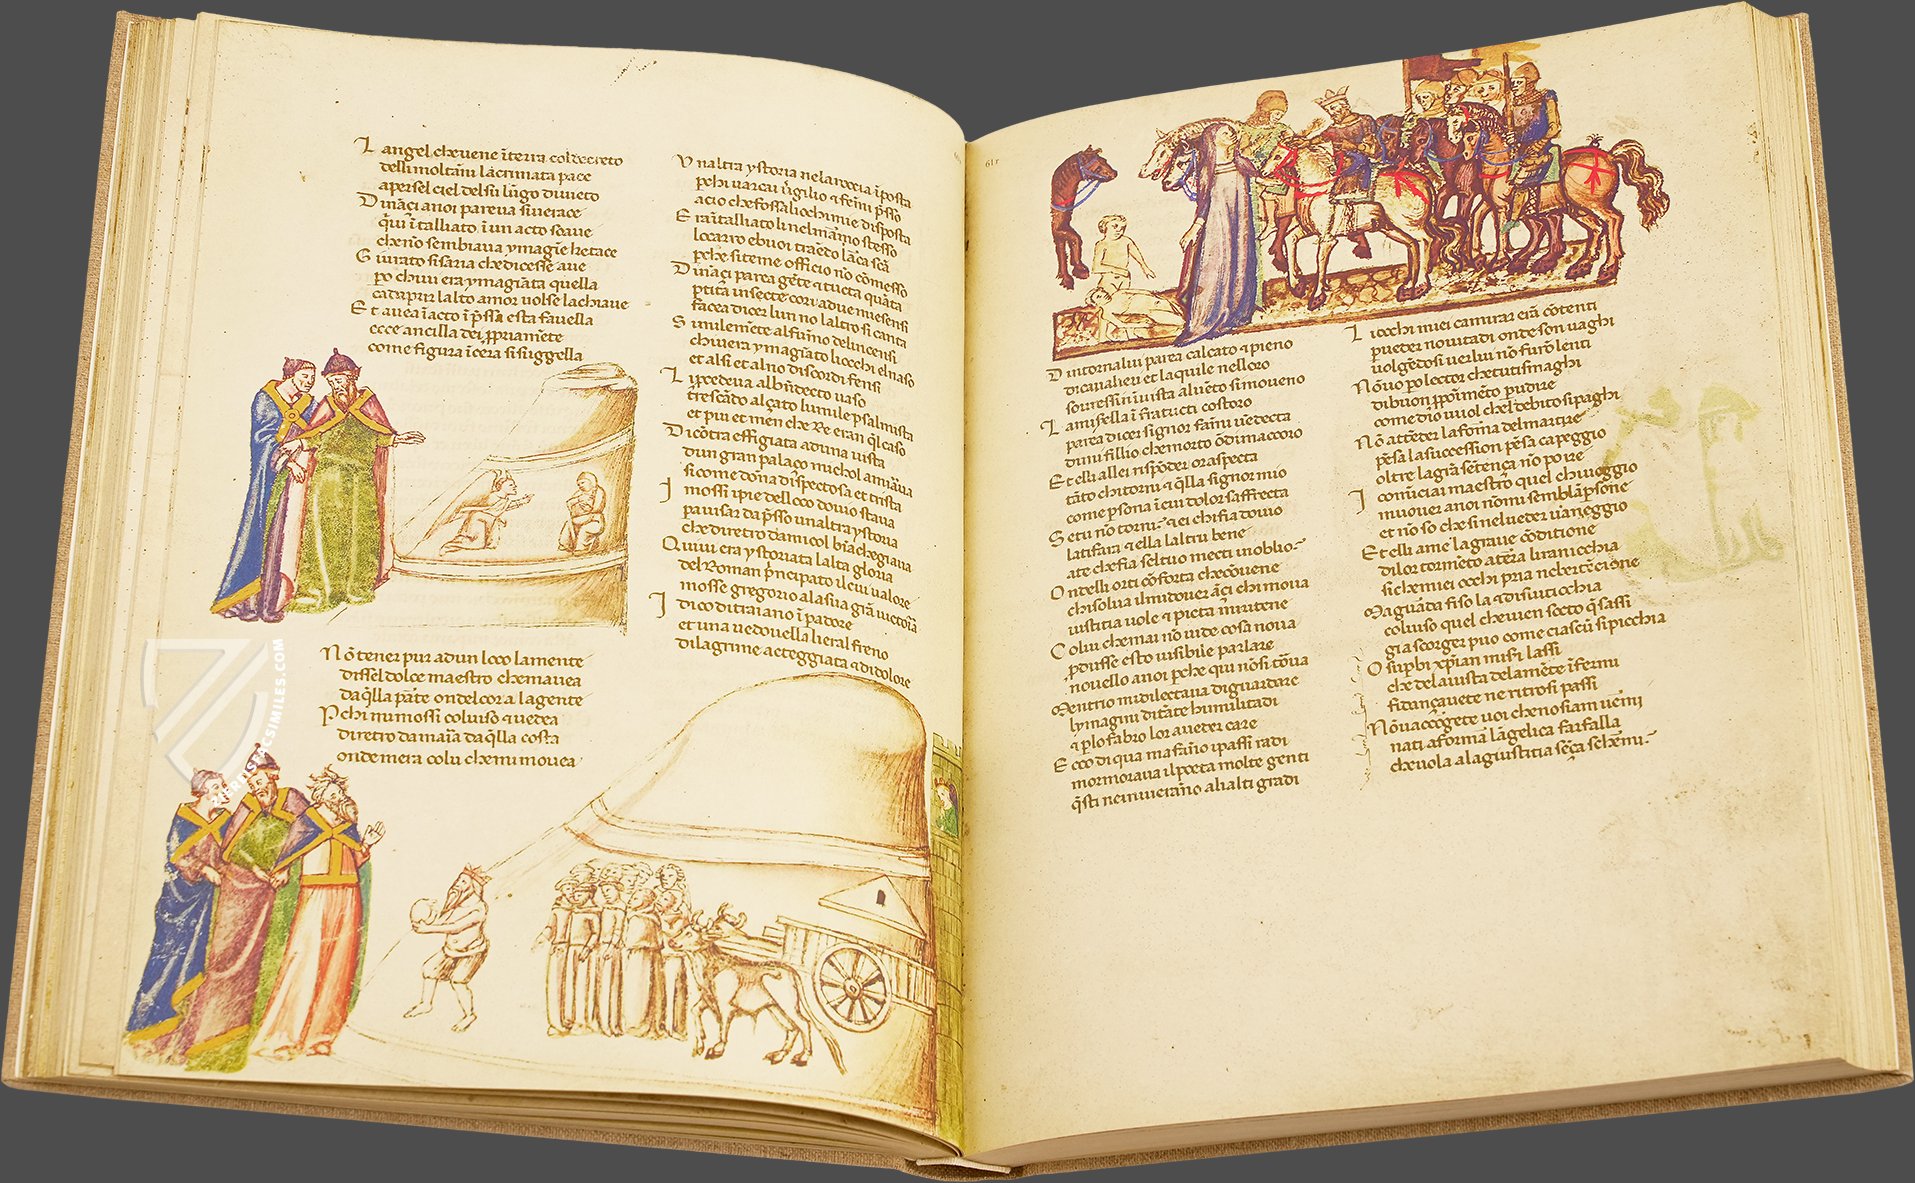 L angel che uene ĩ terra col decreto
delli molt anni lacrimata pace
aperse l ciel del suo lũgo diuieto
Dinãçi a noi pareua si uerace
q̃ui ĩtalliato ĩ un acto soaue
che nõ sembiaua ymagĩe che tace
Giurato si saria che dicesse aue
po chiui era ymagiata quella
cad aprir lalto amor uolse la chiaue
Et auea ĩ acto ĩpressa esta fauella
ecce ancilla dei ppriamẽte
come figura ĩ cera si suggella
Nõ tener pur ad un loco la mente
disse l dolce maestro che m auea
da q̃lla parte onde l cor a la gente
Pchi mi mossi col uiso & uedea
diretro da maria da q̃lla costa
onde m era colui che mi mouea
Vn altra ystoria nela roccia ĩposta
pchi uarcai uirgilio & femi pẽsso
acio che fosse a li ochi mie disposta
Era ĩtalliato li nel marmo stesso
lo carro e buoi traẽdo l arca scã
pche si teme officio nõ cõmesso
Dinãçi parea gẽte & tucta quãta
partita in secte cori a due mie sensi
facea dicer l un no l altro si canta
Similemẽte al fumo deli ncensi
chiuera ymagiato li occhi el naso
et al si et al no discordi fensi
Li precedeua al bñdecto uaso
trescãdo alçato l umile psalmista
et piu et men che Re era ñ q̃l caso
Di cõtra effigiata ad una uista
d un gran palaço michol amiraua
si come dõna dispectosa et trista
I mossi i pie dell oco douio staua
p auisar da presso un altra ystoria
che diretro da micol biãcheggiaua
Quiui era ystoriata l alta gloria
del Roman principato il cui ualore
mosse gregorio a la sua grã uictoria
I dico di traiano ĩ padore
et una uedouella li era l freno
di lagrime acteggiata & di dolore
61 r
Dintorno a lui parea calcato & pieno
di caualieri et l aquile nell oro
sour essi in uista al uẽto si moueno
La misella ĩ fra tucti costoro
parea dicer signor fami uẽdecta
di mi fillio che morto õdi m accoro
Et elli a llei rispõder or aspecta
tãto chi torni & q̃lla signor mio
come psona ĩ cui dolor s affrecta
Se tu nõ torni & ei chi fia douio
la ti fara & ella l altrui bene
a te che fia se l tuo mecti in oblio
Ond elli or ti cõforta che cõuene
chi solua il mi douer ãci chi moua
iustitia uole & pieta mi ritene
Colui che mai nõ uide cosa noua
pdusse esto uisibile parlare
nouello a noi pche qui nõ si troua
Mentrio mi dilectaua di guardare
l ymagini di tãte humilitadi
& p lo fabro lor a ueder care
Ecco di qua ma fãno i passi radi
mormoraua il poeta molte genti
q̃sti ne inuierãno a li alti gradi
Li occhi miei ca mirar erã cõtenti
p ueder nouitadi onde son uaghi
uolgẽdosi uer lui nõ furõ lenti
Nõ uo po lector che tu ti smaghi
di buon pponimẽto p udire
come dio uuol che l debito si paghi
Nõ attẽder la forma del martire
pẽsa la succession pẽsa ca peggio
oltre la grã sentença nõ po ire
I comĩciai maestro quel chi ueggio
muouer a noi nõ mi sembiã psone
et nõ so che si nel ueder uaneggio
Et elli a me la graue cõditione
di lor tormẽto a terra li ranicchia
si che miei occhi pria nebber tẽcione
Ma guarda fiso la & disuiticchia
col uiso quel che uien socto q̃ sassi
gia scorger puo come ciascũ si picchia
O supbi xp̃ian miseri lassi
che de la uista de la mẽte ĩfermi
fidança auete ne ritrosi passi
Nõ u accorgete uoi che noi siam uermi
nati a formar l angelica farfalla
che uola a la giustitia sẽça schermi